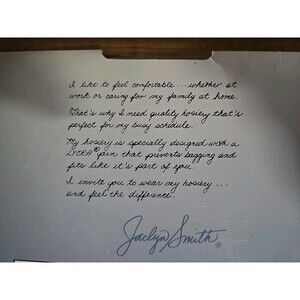 I like to feel comfortable... whether at
work or caring for my family at home.
That's why I need quality hosiery that's
perfect for my busy schedule.
My hosiery is specially designed with a
LYCRA® yarn that prevents bagging and
fits like it's part of you.
I invite you to wear my hosiery...
and feel the difference.
Jaclyn Smith®